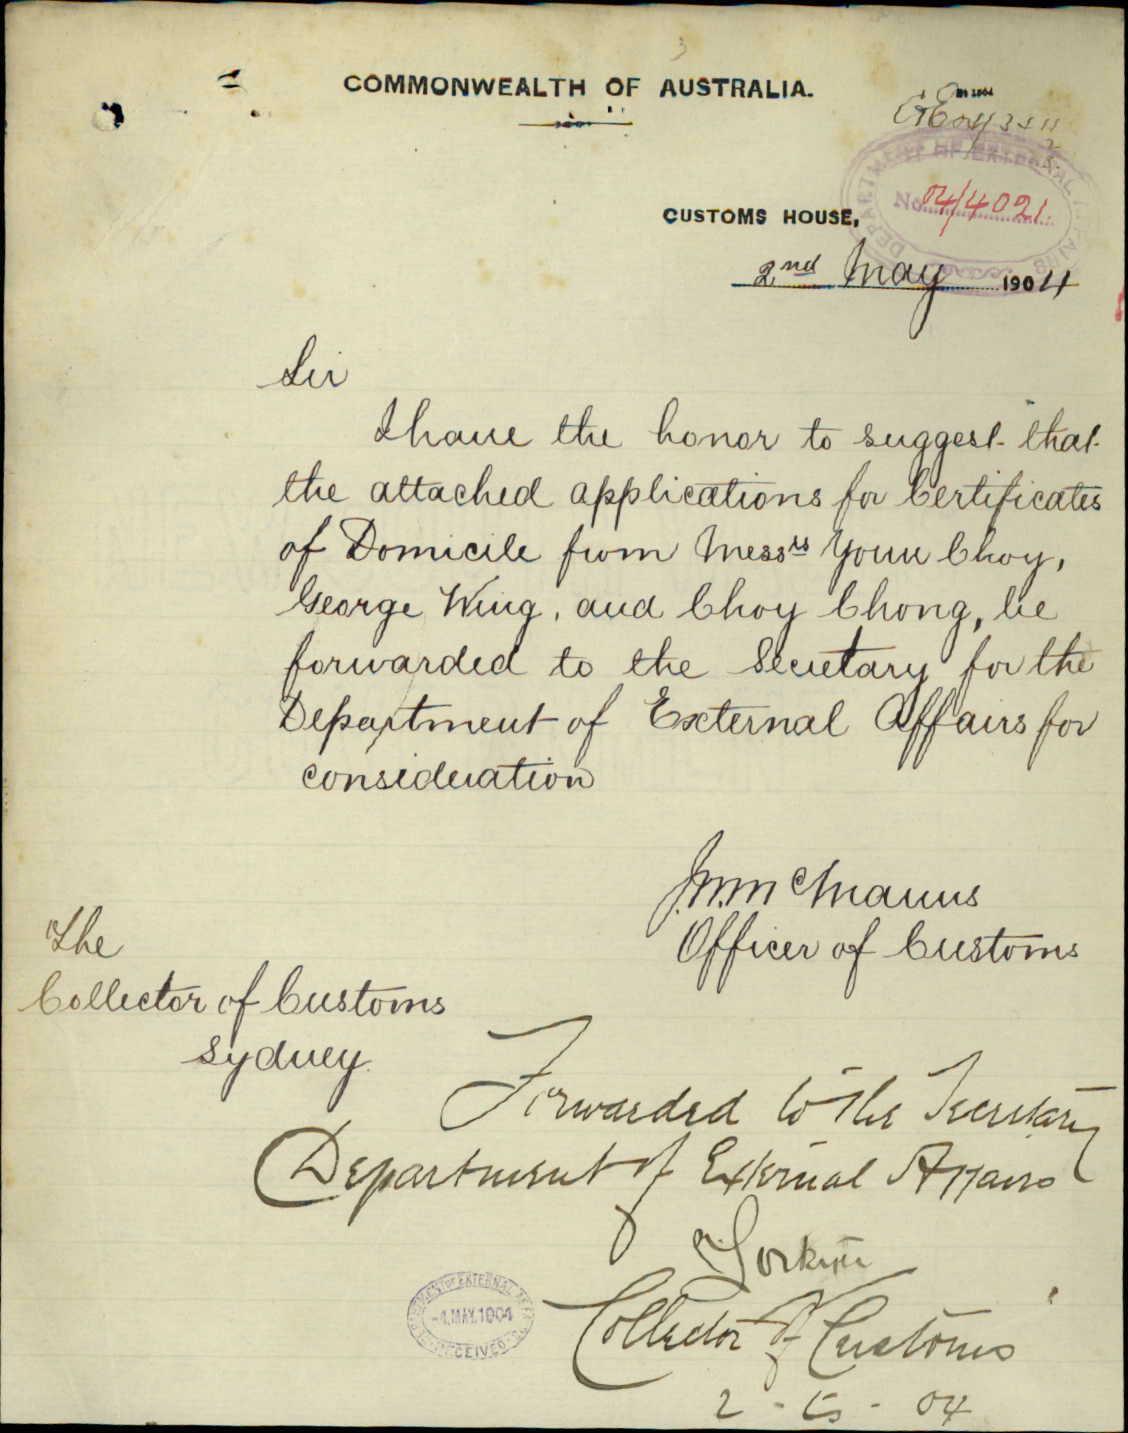 COMMONWEALTH OF AUSTRALIA.
DEPARTMENT OF EXTERNAL AFFAIRS
No. 04/4021
CUSTOMS HOUSE,
2nd May 1904
Sir
I have the honor to suggest that
the attached applications for Certificates
of Domicile from Messrs Youn Choy,
George Wing, and Choy Chong, be
forwarded to the Secretary for the
Department of External Affairs for
consideration
McManus
Officer of Customs
The
Collector of Customs
Sydney.
Forwarded to the Secretary
Department of External Affairs
Collector of Customs
2 - 5 - 04
DEPARTMENT OF EXTERNAL AFFAIRS
-4.MAY.1904
RECEIVED